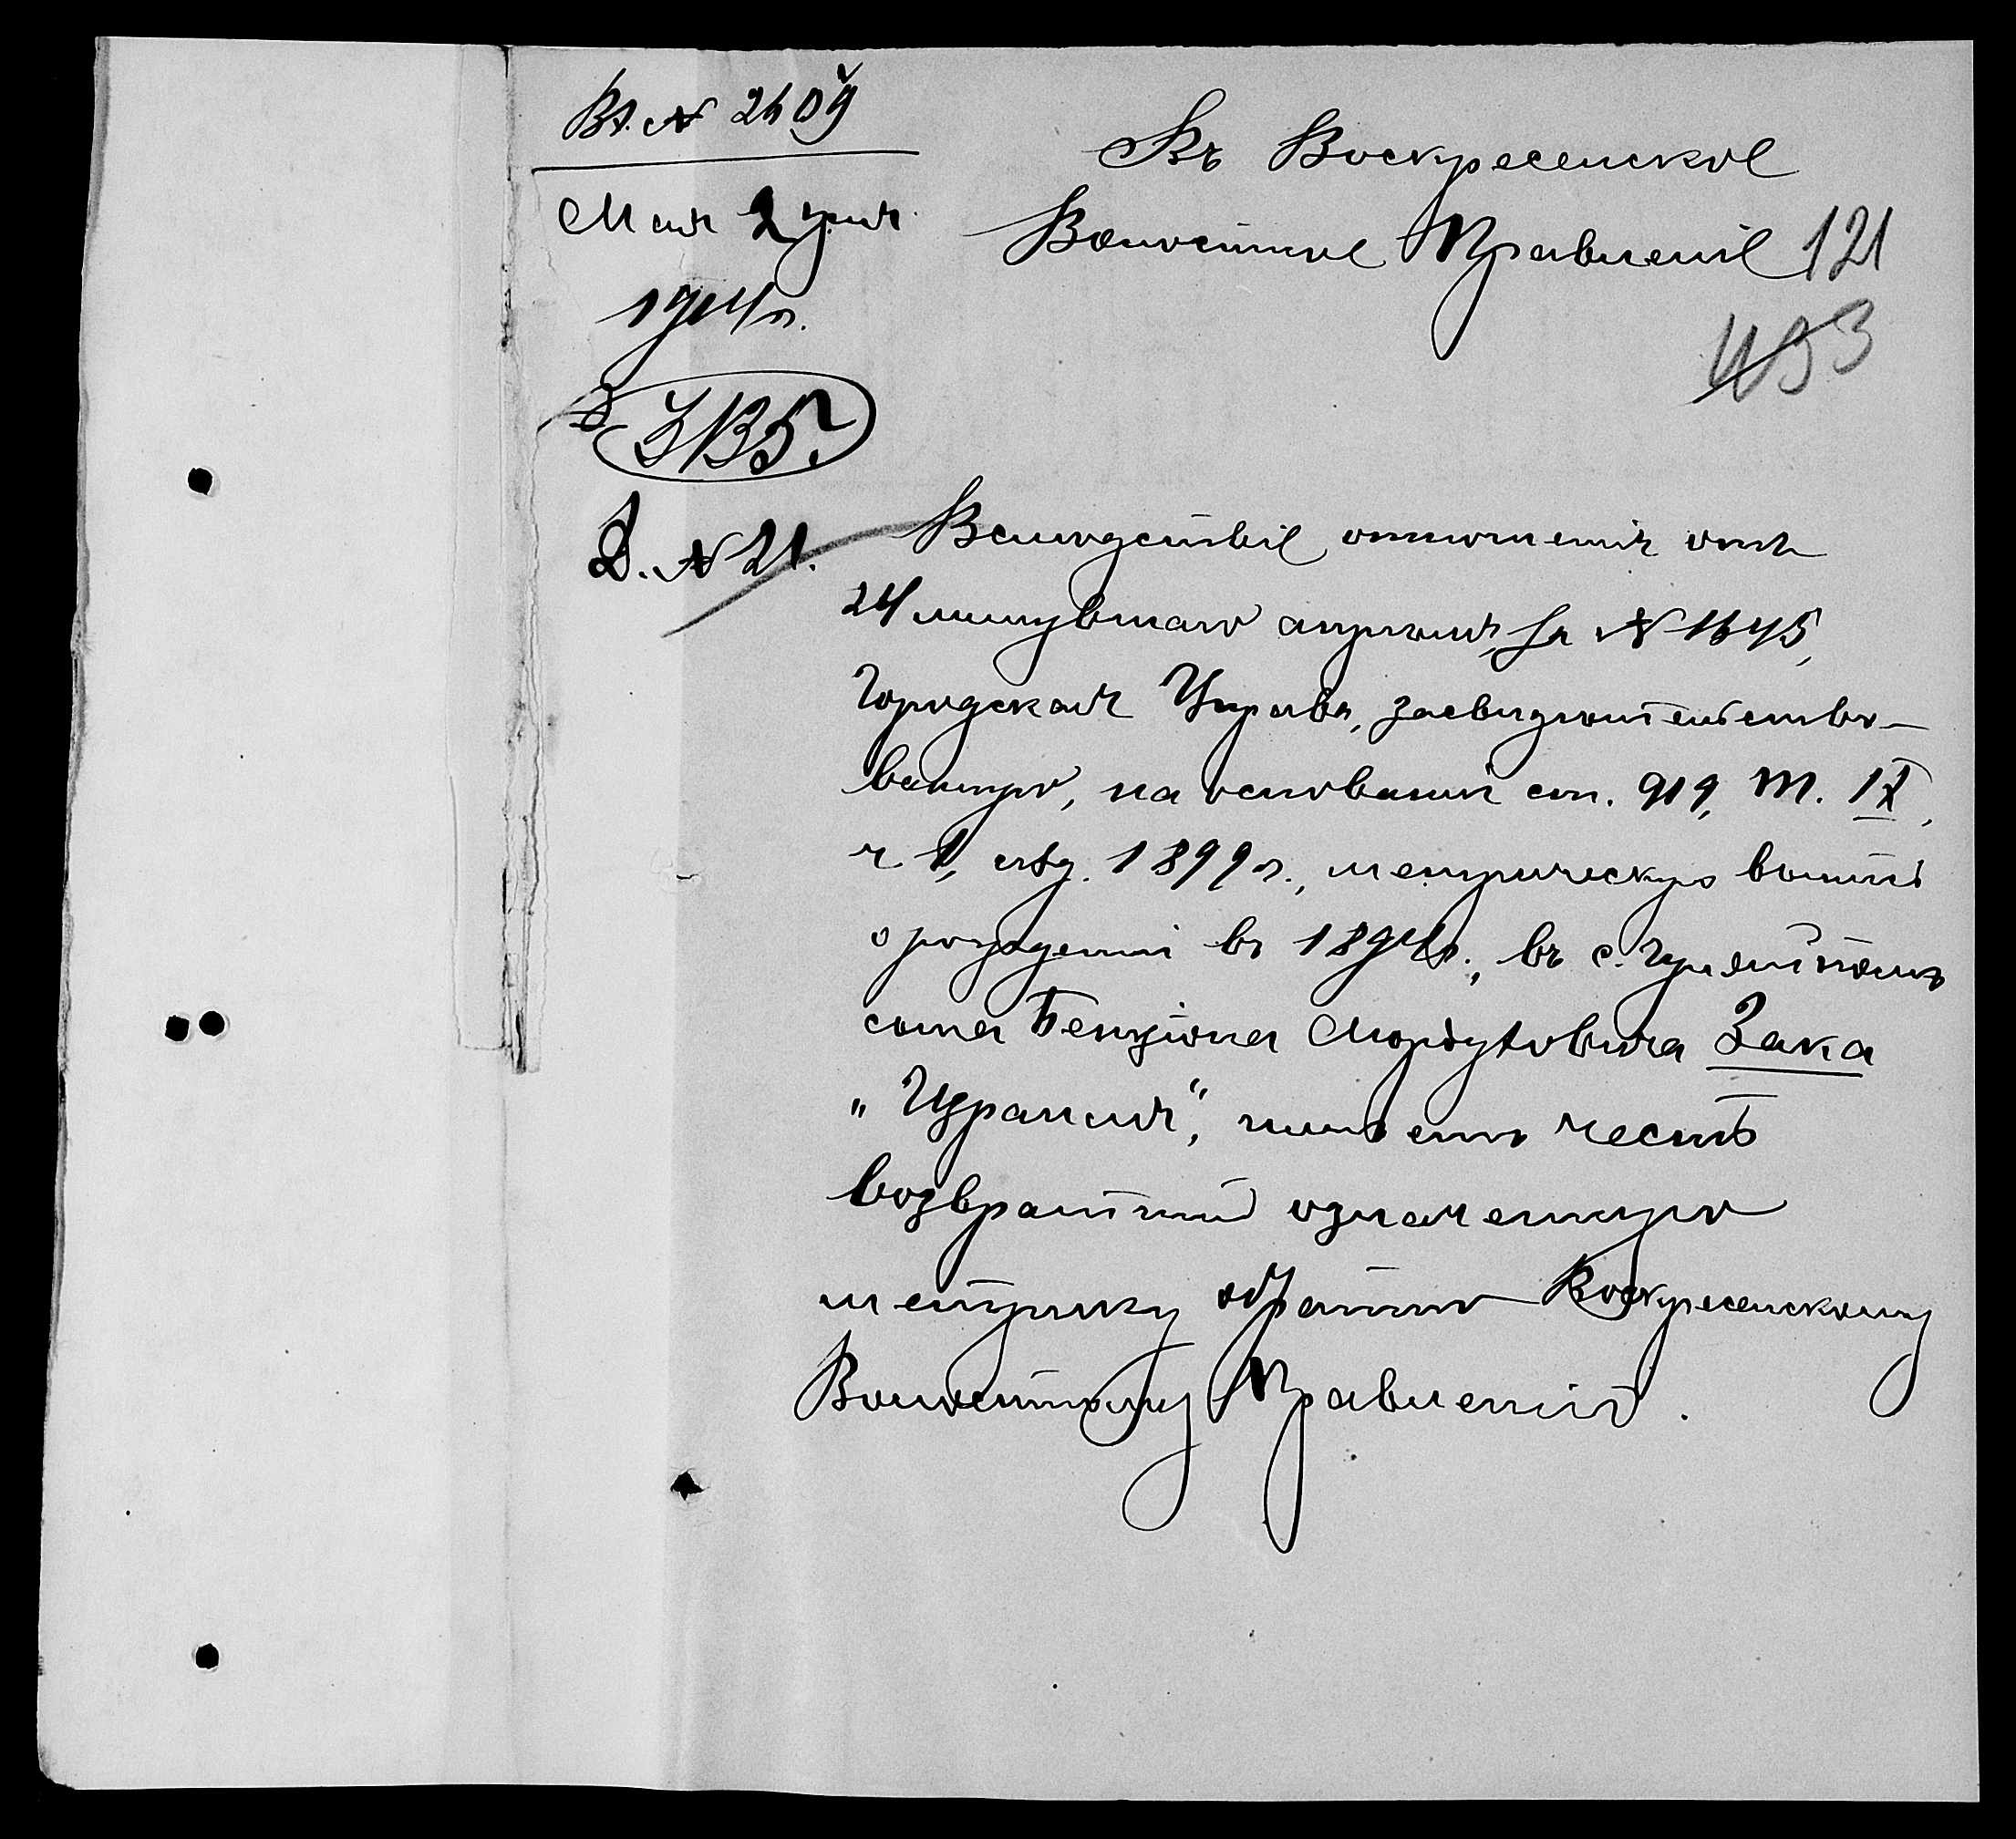 Вх. № 2409
Мая 2 дня
1914 г.
3135.
Д. № 21.
Въ Воскресенское
Волостное Правленіе
121
Вслѣдствіе отношенія отъ
24 минувшаго апрѣля, за № 1645,
Городская Управа, засвидѣтельство-
ванную, на основаніи ст. 919, т. IX,
ч 1, изд. 1899 г., метрическую выпись
о рожденіи въ 1894 г., въ с. Гуляйполѣ
сына Бенціона Мордуховича Зака
„Израиля", имѣетъ честь
возвратить означенную
метрику обратно Воскресенскому
Волостному Правленію.